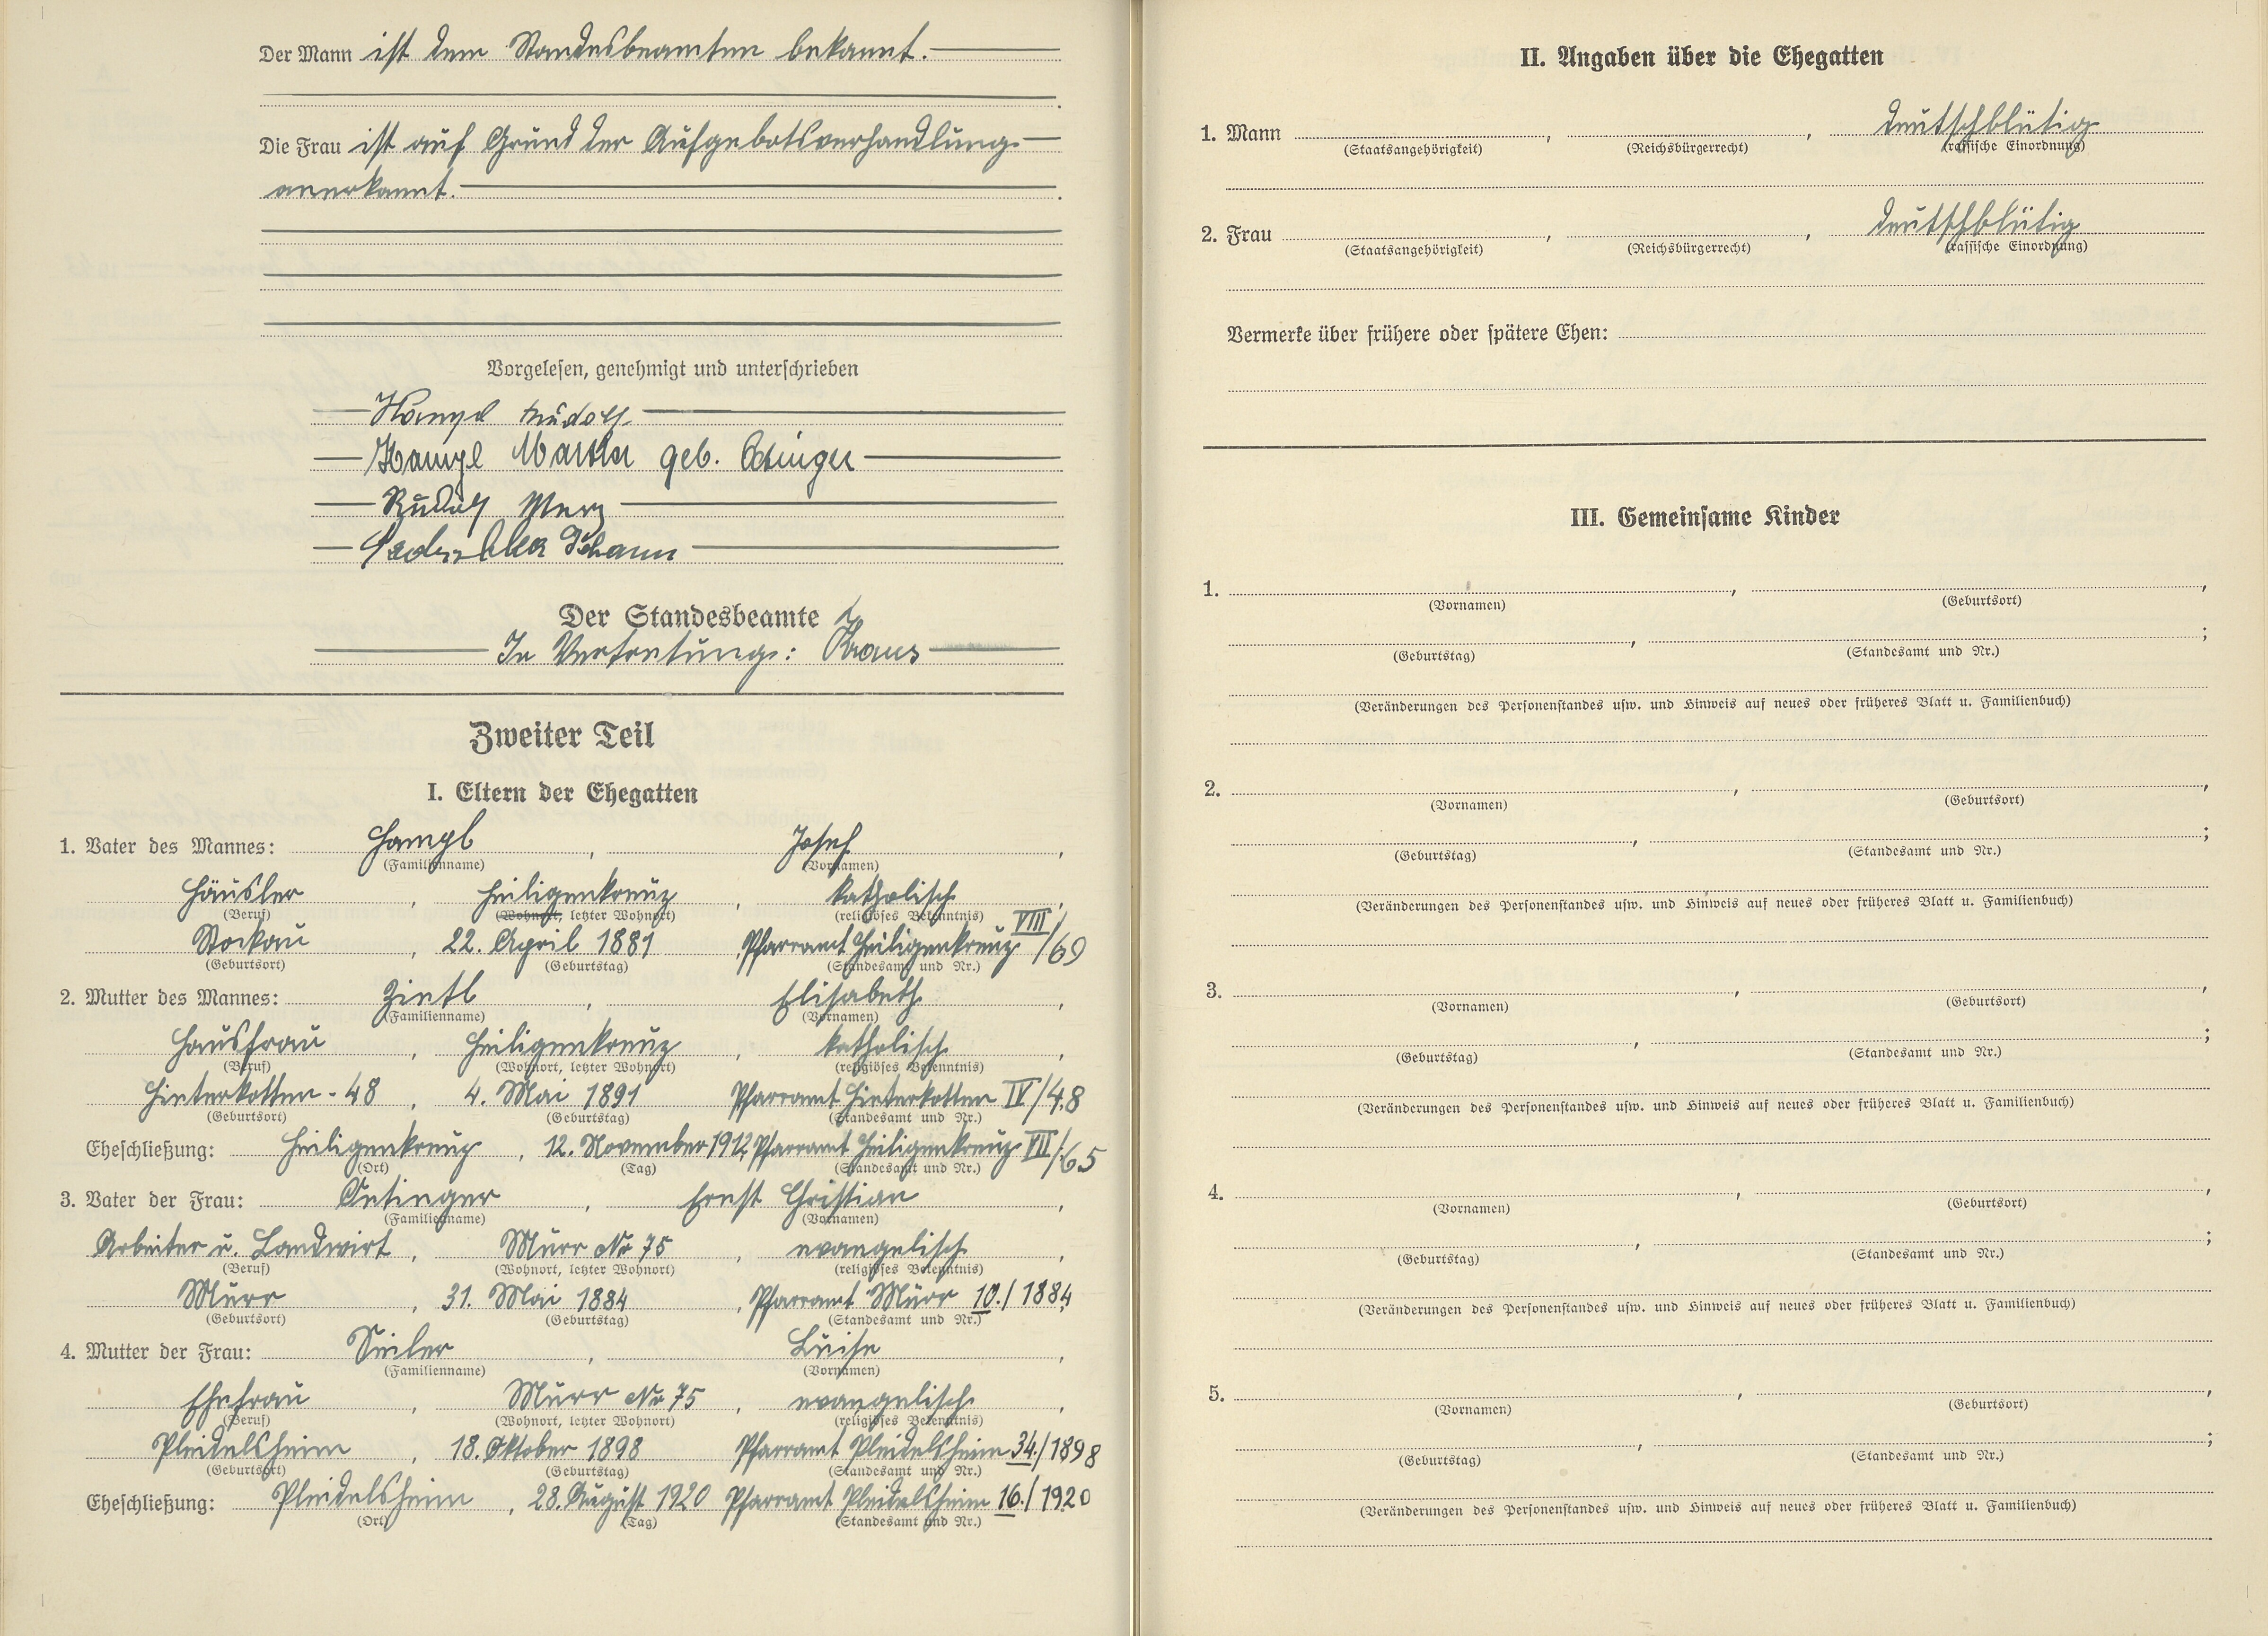 Der Mann ist dem Standesbeamten bekannt.
Die Frau ist auf Grund der Aufgebotsverhandlung
anerkannt.
Vorgelesen, genehmigt und unterschrieben
Hampl Rudolf
Hampl Martha geb. Oetinger
Rudolf Merz
Johann
Der Standesbeamte
In Vertretung: Kraus
Zweiter Teil
I. Eltern der Ehegatten
1. Vater des Mannes: Hampl, Josef,
(Familienname) (Vornamen)
Häusler, Heiligenkreuz, katholisch
(Beruf) (Wohnort, letzter Wohnort) (religiöses Bekenntnis)
Stockau, 22. April 1881, Pfarramt Heiligenkreuz VIII/69
(Geburtsort) (Geburtstag) (Standesamt und Nr.)
2. Mutter des Mannes: Zintl, Elisabeth,
(Familienname) (Vornamen)
Hausfrau, Heiligenkreuz, katholisch,
(Beruf) (Wohnort, letzter Wohnort) (religiöses Bekenntnis)
Hinterkotten - 48, 4. Mai 1891 Pfarramt Hinterkotten IV/48
(Geburtsort) (Geburtstag) (Standesamt und Nr.)
Eheschließung: Heiligenkreuz, 12. November 1912, Pfarramt Heiligenkreuz VII/65
(Ort) (Tag) (Standesamt und Nr.)
3. Vater der Frau: Oetinger, Ernst Christian,
(Familienname) (Vornamen)
Arbeiter u. Landwirt, Murr No 75, evangelisch,
(Beruf) (Wohnort, letzter Wohnort) (religiöses Bekenntnis)
Murr, 31. Mai 1884, Pfarramt Murr 10./1884
(Geburtsort) (Geburtstag) (Standesamt und Nr.)
4. Mutter der Frau: Seiler, Luise,
(Familienname) (Vornamen)
Ehefrau, Murr No 75, evangelisch,
(Beruf) (Wohnort, letzter Wohnort) (religiöses Bekenntnis)
Pleidelsheim, 18. Oktober 1898 Pfarramt Pleidelsheim 34./1898
(Geburtsort) (Geburtstag) (Standesamt und Nr.)
Eheschließung: Pleidelsheim, 28. August 1920 Pfarramt Pleidelsheim 16./1920
(Ort) (Tag) (Standesamt und Nr.)
II. Angaben über die Ehegatten
1. Mann , , deutschblütig
(Staatsangehörigkeit) (Reichsbürgerrecht) (rassische Einordnung)
2. Frau , , deutschblütig
(Staatsangehörigkeit) (Reichsbürgerrecht) (rassische Einordnung)
Vermerke über frühere oder spätere Ehen:
III. Gemeinsame Kinder
1. , ,
(Vornamen) (Geburtsort)
, ;
(Geburtstag) (Standesamt und Nr.)
(Veränderungen des Personenstandes usw. und Hinweis auf neues oder früheres Blatt u. Familienbuch)
2. , ,
(Vornamen) (Geburtsort)
, ;
(Geburtstag) (Standesamt und Nr.)
(Veränderungen des Personenstandes usw. und Hinweis auf neues oder früheres Blatt u. Familienbuch)
3. , ,
(Vornamen) (Geburtsort)
, ;
(Geburtstag) (Standesamt und Nr.)
(Veränderungen des Personenstandes usw. und Hinweis auf neues oder früheres Blatt u. Familienbuch)
4. , ,
(Vornamen) (Geburtsort)
, ;
(Geburtstag) (Standesamt und Nr.)
(Veränderungen des Personenstandes usw. und Hinweis auf neues oder früheres Blatt u. Familienbuch)
5. , ,
(Vornamen) (Geburtsort)
, ;
(Geburtstag) (Standesamt und Nr.)
(Veränderungen des Personenstandes usw. und Hinweis auf neues oder früheres Blatt u. Familienbuch)